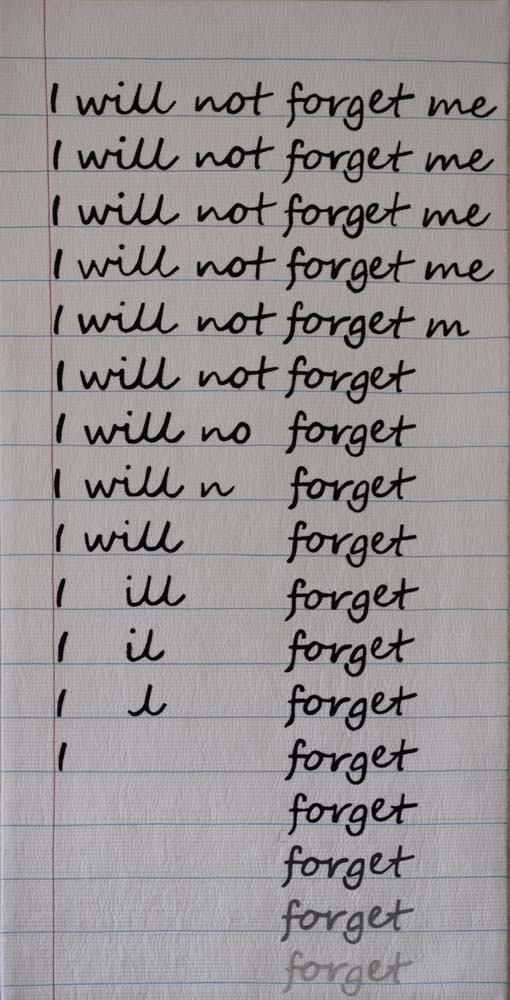 I will not forget me
I will not forget me
I will not forget me
I will not forget me
I will not forget m
I will not forget
I will no forget
I will n forget
I will forget
I ill forget
I il forget
I l forget
I forget
forget
forget
forget
forget